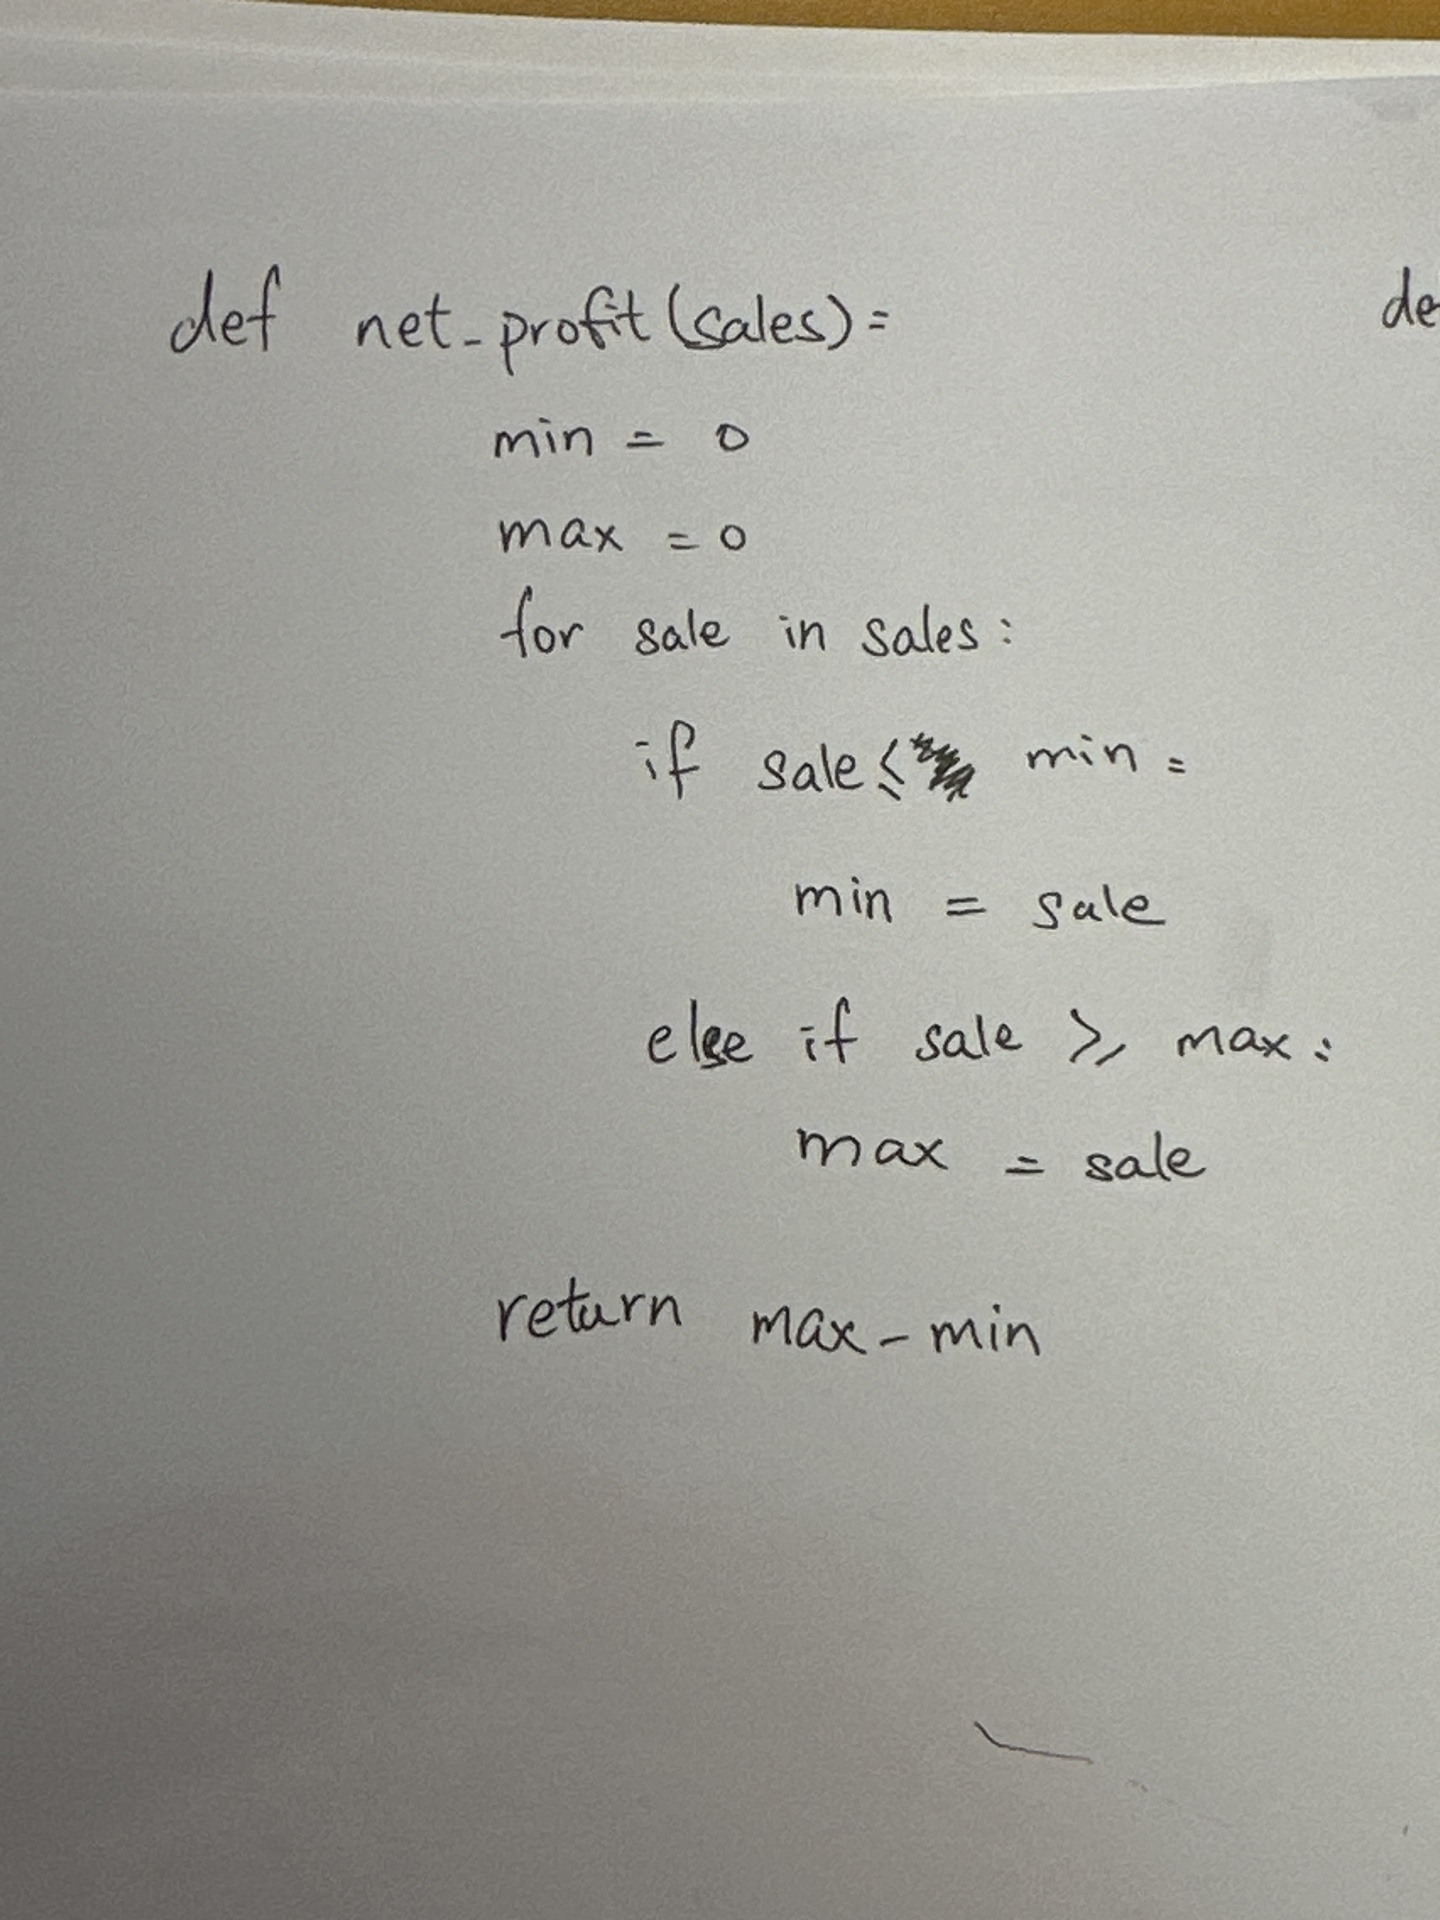 def net_profit(sales):
min = 0
max = 0
for sale in sales:
if sale ≤ min:
min = sale
else if sale ≥ max:
max = sale
return max-min
de